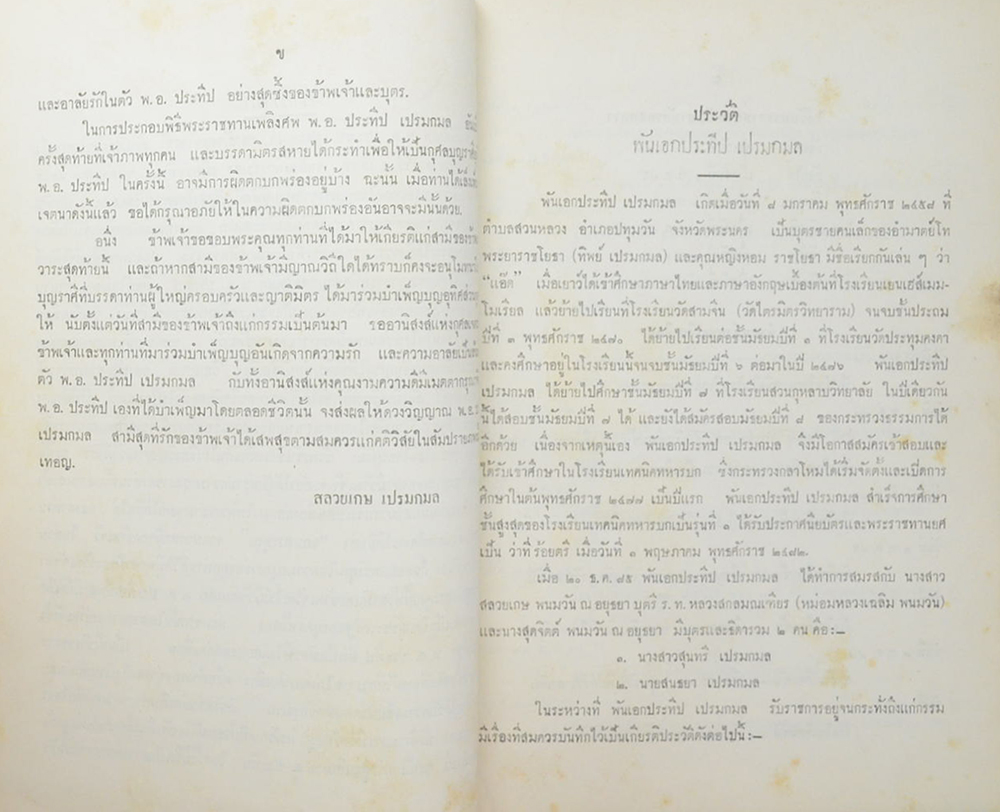 ข
และอาลัยรักในตัว พ.อ. ประทีป อย่างสุดซึ้งของข้าพเจ้าและบุตร.
ในการประกอบพิธีพระราชทานเพลิงศพ พ.อ. ประทีป เปรมกมล
ครั้งสุดท้ายที่เจ้าภาพทุกคน และบรรดามิตรสหายได้กระทำเพื่อให้เป็นกุศลบุญราศี
พ.อ. ประทีป ในครั้งนี้ อาจมีการผิดตกบกพร่องอยู่บ้าง ฉะนั้น เมื่อท่านได้
เจตนาดังนี้แล้ว ขอได้กรุณาอภัยให้ในความผิดตกบกพร่องอันอาจจะมีนั้นด้วย.
อนึ่ง ข้าพเจ้าขอขอบพระคุณทุกท่านที่ได้มาให้เกียรติแก่สามีของข้าฯ
วาระสุดท้ายนี้ และถ้าหากสามีของข้าพเจ้ามีญาณวิถีใดได้ทราบก็คงจะอนุโมทนา
บุญราศีที่บรรดาท่านผู้ใหญ่ครอบครัวและญาติมิตร ได้มาร่วมบำเพ็ญบุญอุทิศส่วน
ให้ นับตั้งแต่วันที่สามีของข้าพเจ้าถึงแก่กรรมเป็นต้นมา ขออานิสงส์แห่งกุศล
ข้าพเจ้าและทุกท่านที่มาร่วมบำเพ็ญบุญอันเกิดจากความรัก และความอาลัย
ตัว พ.อ. ประทีป เปรมกมล กับทั้งอานิสงส์แห่งคุณงามความดีมีเมตตากรุณา
พ.อ. ประทีป เองที่ได้บำเพ็ญมาโดยตลอดชีวิตนั้น จงส่งผลให้ดวงวิญญาณ พ.อ.
เปรมกมล สามีสุดที่รักของข้าพเจ้าได้เสพสุขตามสมควรแก่คติวิสัยในสัมปรายภพ
เทอญ.
สลวยเกษ เปรมกมล
ประวัติ
พันเอกประทีป เปรมกมล
พันเอกประทีป เปรมกมล เกิดเมื่อวันที่ ๘ มกราคม พุทธศักราช ๒๔๕๘ ที่
ตำบลสวนหลวง อำเภอปทุมวัน จังหวัดพระนคร เป็นบุตรชายคนเล็กของอำมาตย์โท
พระยาราชโยธา (ทิพย์ เปรมกมล) และคุณหญิงหอม ราชโยธา มีชื่อเรียกกันเล่น ๆ ว่า
"แอ๊ด" เมื่อเยาว์ได้เข้าศึกษาภาษาไทยและภาษาอังกฤษเบื้องต้นที่โรงเรียนเยนเฮส์เมม-
โมเรียล แล้วย้ายไปเรียนที่โรงเรียนวัดสามจีน (วัดไตรมิตรวิทยาราม) จนจบชั้นประถม
ปีที่ ๓ พุทธศักราช ๒๔๗๐ ได้ย้ายไปเรียนต่อชั้นมัธยมปีที่ ๑ ที่โรงเรียนวัดประทุมคงคา
และคงศึกษาอยู่ในโรงเรียนนี้จนจบชั้นมัธยมปีที่ ๖ ต่อมาในปี ๒๔๗๖ พันเอกประทีป
เปรมกมล ได้ย้ายไปศึกษาชั้นมัธยมปีที่ ๗ ที่โรงเรียนสวนกุหลาบวิทยาลัย ในปีเดียวกัน
นี้ได้สอบชั้นมัธยมปีที่ ๗ ได้ และยังได้สมัครสอบมัธยมปีที่ ๘ ของกระทรวงธรรมการได้
อีกด้วย เนื่องจากเหตุนี้เอง พันเอกประทีป เปรมกมล จึงมีโอกาสสมัครเข้าสอบและ
ได้รับเข้าศึกษาในโรงเรียนเทคนิคทหารบก ซึ่งกระทรวงกลาโหมได้เริ่มจัดตั้งและเปิดการ
ศึกษาในต้นพุทธศักราช ๒๔๗๗ เป็นปีแรก พันเอกประทีป เปรมกมล สำเร็จการศึกษา
ชั้นสูงสุดของโรงเรียนเทคนิคทหารบกเป็นรุ่นที่ ๑ ได้รับประกาศนียบัตรและพระราชทานยศ
เป็น ว่าที่ ร้อยตรี เมื่อวันที่ ๑ พฤษภาคม พุทธศักราช ๒๔๘๒.
เมื่อ ๒๐ ธ.ค. ๘๕ พันเอกประทีป เปรมกมล ได้ทำการสมรสกับ นางสาว
สลวยเกษ พนมวัน ณ อยุธยา บุตรี ร.ท. หลวงสกลมณเฑียร (หม่อมหลวงเฉลิม พนมวัน)
และนางสุดจิตต์ พนมวัน ณ อยุธยา มีบุตรและธิดารวม ๒ คน คือ :–
๑. นางสาวสุนทรี เปรมกมล
๒. นายสนธยา เปรมกมล
ในระหว่างที่ พันเอกประทีป เปรมกมล รับราชการอยู่จนกระทั่งถึงแก่กรรม
มีเรื่องที่สมควรบันทึกไว้เป็นเกียรติประวัติดังต่อไปนี้ :–